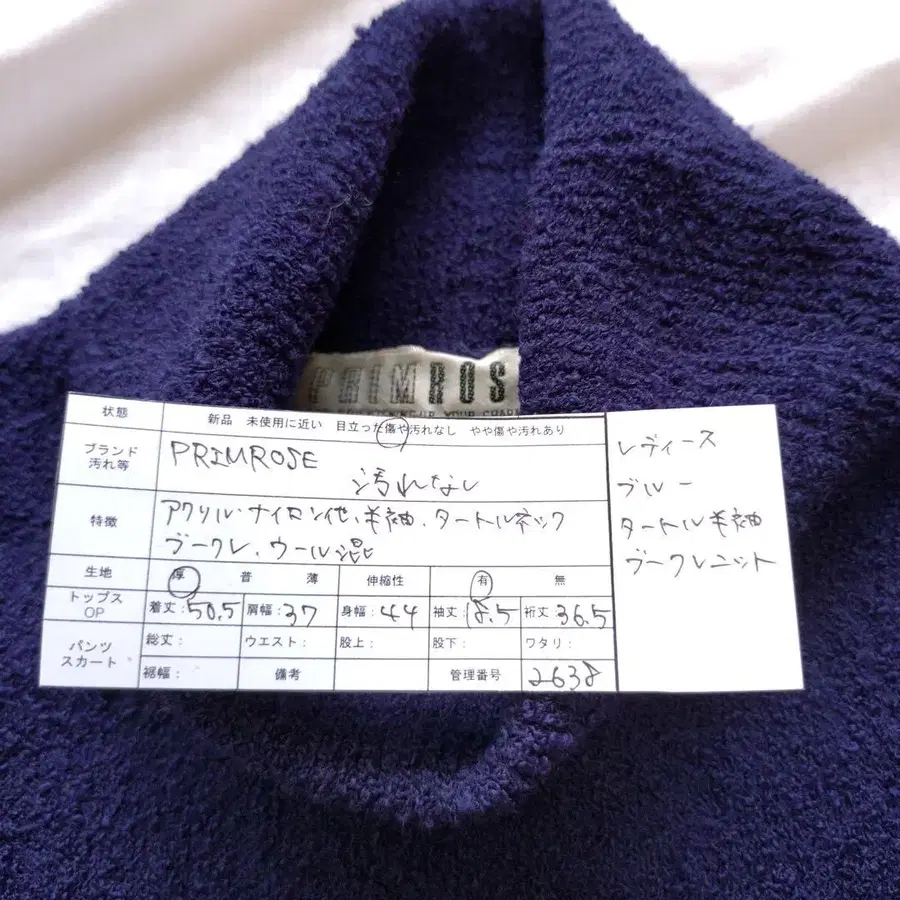 PRIMROS
状態 新品 未使用に近い 目立った傷や汚れなし やや傷や汚れあり
ブランド
汚れ等
PRIMROSE
汚れなし
特徴
アクリル・ナイロン他、半袖、タートルネック
ブークレ、ウール混
生地 厚 普 薄 伸縮性 有 無
トップス
OP
着丈:50.5 肩幅:37 身幅:44 袖丈:18.5 裄丈:36.5
パンツ
スカート
総丈: ウエスト: 股上: 股下: ワタリ:
裾幅: 備考 管理番号 2638
レディース
ブルー
タートル半袖
ブークレニット